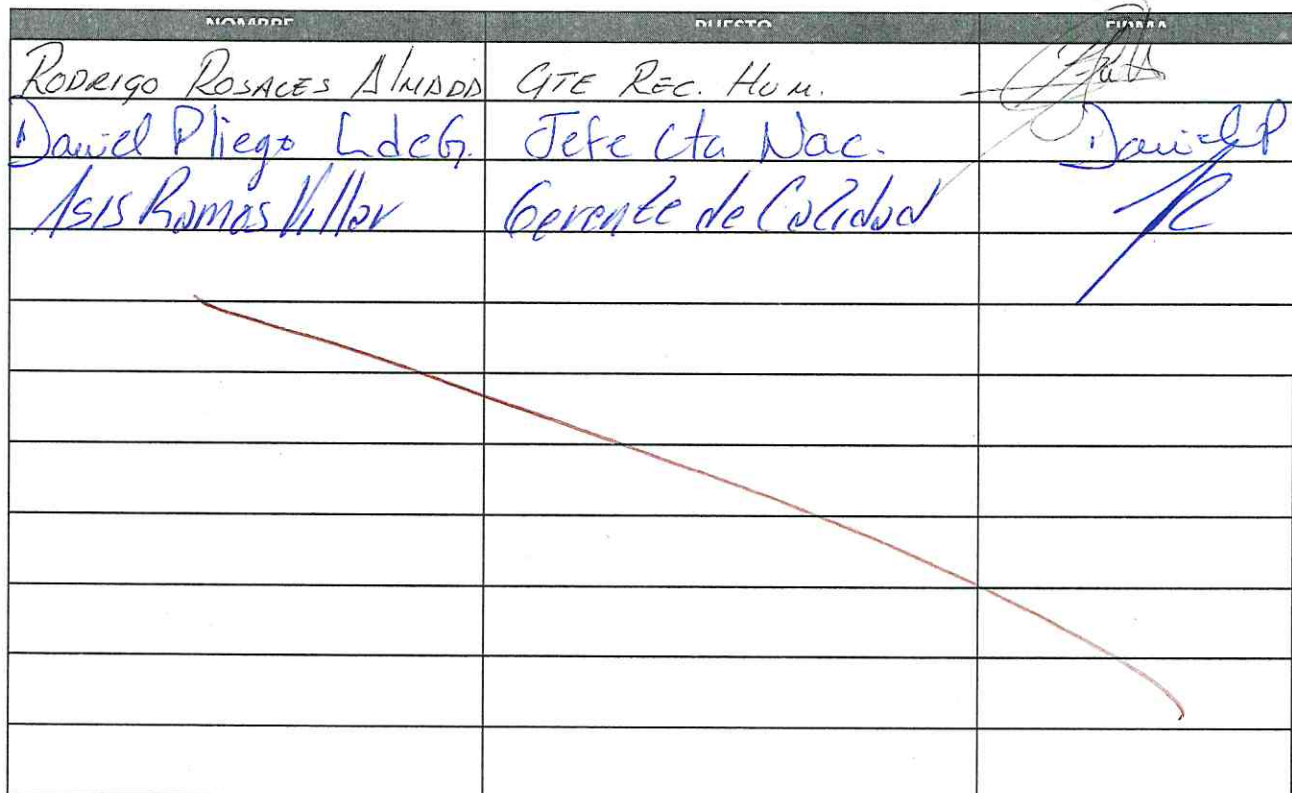 NOMBRE PUESTO FIRMA
RODRIGO ROSALES ALMADA GTE REC. HUM.
Daniel Pliego LdeG. Jefe Cta Nac. Daniel P
Asis Ramos Villar Gerente de Calidad